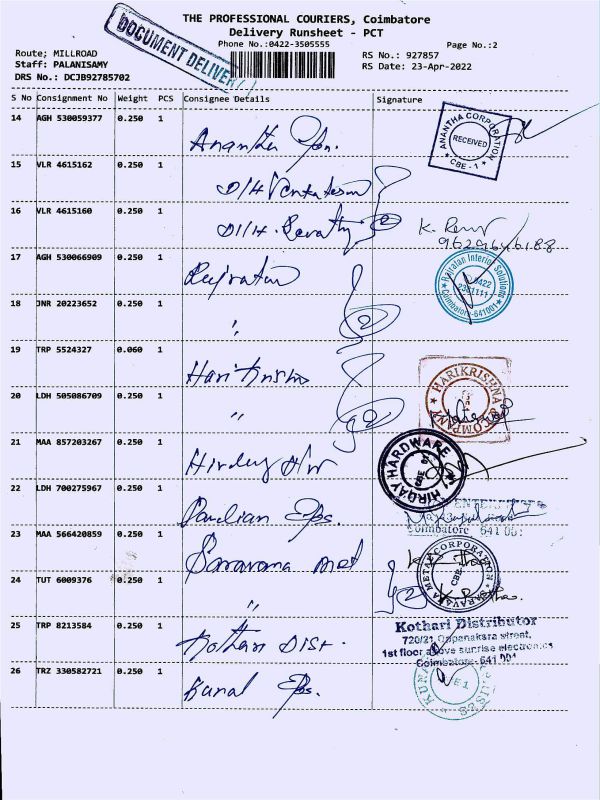 THE PROFESSIONAL COURIERS, Coimbatore
Delivery Runsheet - PCT
Phone No.:0422-3505555
Page No.:2
DOCUMENT DELIVERY
Route; MILLROAD
Staff: PALANISAMY
DRS No.: DCJB92785702
RS No.: 927857
RS Date: 23-Apr-2022
S No Consignment No Weight PCS Consignee Details Signature
14 AGH 530059377 0.250 1 Anantha
ANANTHA CORPORATION RECEIVED CBE - 1
15 VLR 4615162 0.250 1 D/H Venkatesan
16 VLR 4615160 0.250 1 D/H. Revathy 2
9629646188
17 AGH 530066909 0.250 1 Rajratan
Rajratan Interior Solutions 0422 Coimbatore-641001
18 JNR 20223652 0.250 1 " 2
19 TRP 5524327 0.060 1 Hari Krishna
20 LDH 505086709 0.250 1 " 2
HARIKRISHNA COMPANY
21 MAA 857203267 0.250 1 Hirday H/w
HIRDAY HARDWARE CBE
22 LDH 700275967 0.250 1 Pandian Eps
Coimbatore 641 001
23 MAA 566420859 0.250 1 Saravana Met
SARAVANA METAL CORPORATION CBE
24 TUT 6009376 0.250 1 " 2
25 TRP 8213584 0.250 1 Kothari Dist.
Kothari Distributor
720/21, Oppanakara street,
1st floor, above sunrise electronics
Coimbatore-641 001
26 TRZ 330582721 0.250 1 Kunal Eps.